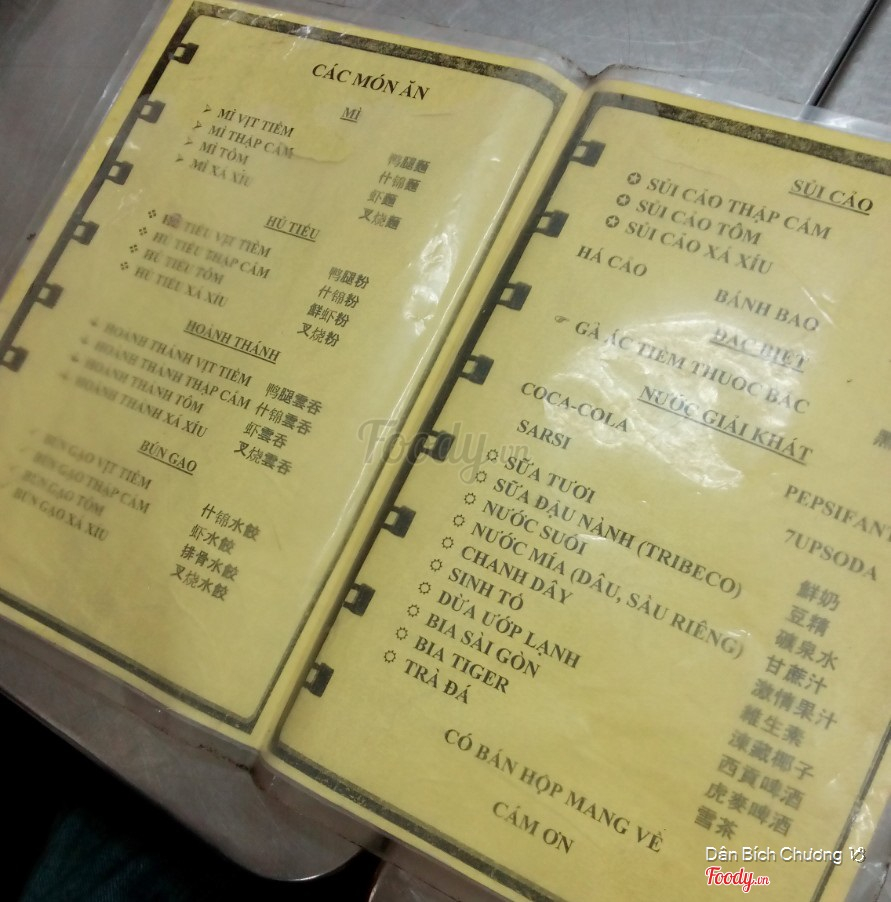 CÁC MÓN ĂN
MÌ
MÌ VỊT TIỀM 鸭腿麵
MÌ THẬP CẨM 什锦麵
MÌ TÔM 虾麵
MÌ XÁ XÍU 叉烧麵
HỦ TIẾU
TIẾU VỊT TIỀM 鸭腿粉
HỦ TIẾU THẬP CẨM 什锦粉
HỦ TIẾU TÔM 鮮虾粉
HỦ TIẾU XÁ XÍU 叉烧粉
HOÀNH THÁNH
HOÀNH THÁNH VỊT TIỀM 鸭腿雲吞
HOÀNH THÁNH THẬP CẨM 什锦雲吞
HOÀNH THÁNH TÔM 虾雲吞
HOÀNH THÁNH XÁ XÍU 叉烧雲吞
BÚN GẠO
BÚN GẠO VỊT TIỀM 什锦水餃
BÚN GẠO THẬP CẨM 虾水餃
BÚN GẠO TÔM 排骨水餃
BÚN GẠO XÁ XÍU 叉烧水餃
SỦI CẢO
SỦI CẢO THẬP CẨM
SỦI CẢO TÔM
SỦI CẢO XÁ XÍU
HÁ CẢO
BÁNH BAO
ĐẶC BIỆT
GÀ ÁC TIỀM THUỐC BẮC
NƯỚC GIẢI KHÁT
COCA-COLA PEPSIFANT
SARSI 7UPSODA
SỮA TƯƠI 鮮奶
SỮA ĐẬU NÀNH (TRIBECO) 豆精
NƯỚC SUỐI 礦泉水
NƯỚC MÍA (DÂU, SẦU RIÊNG) 甘蔗汁
CHANH DÂY 激情果汁
SINH TỐ 維生素
DỪA ƯỚP LẠNH 涷藏椰子
BIA SÀI GÒN 西貢啤酒
BIA TIGER 虎麥啤酒
TRÀ ĐÁ 雪茶
CÓ BÁN HỘP MANG VỀ
CÁM ƠN
Foody.vn
Dân Bích Chương
Foody.vn